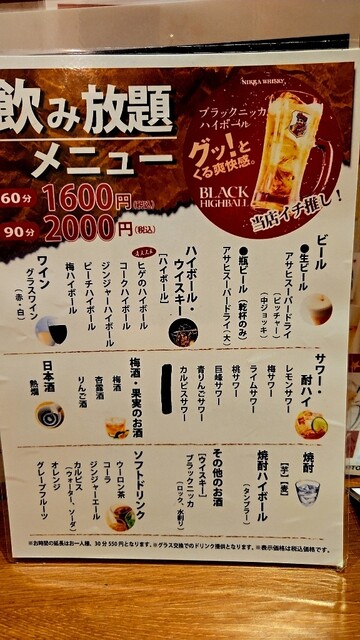 飲み放題
メニュー
60分 1600円(税込)
90分 2000円(税込)
NIKKA WHISKY
ブラックニッカ
ハイボール
グッ!と
くる爽快感。
BLACK
HIGHBALL
当店イチ推し!
ビール
●生ビール
アサヒスーパードライ
(ピッチャー)
(中ジョッキ)
●瓶ビール【乾杯のみ】
アサヒスーパードライ(大)
ハイボール・
ウイスキー
[ハイボール]
ヒゲのハイボール
コークハイボール
ジンジャーハイボール
ピーチハイボール
梅ハイボール
ワイン
グラスワイン
(赤・白)
サワー・
酎ハイ
レモンサワー
梅サワー
ライムサワー
桃サワー
巨峰サワー
青りんごサワー
カルピスサワー
梅酒・果実のお酒
梅酒
杏露酒
りんご酒
日本酒
熱燗
焼酎
【芋】【麦】
焼酎ハイボール
(タンブラー)
その他のお酒
[ウイスキー]
ブラックニッカ
(ロック、水割り)
ソフトドリンク
ウーロン茶
コーラ
ジンジャーエール
カルピス
(ウォーター、ソーダ)
オレンジ
グレープフルーツ
※お時間の延長はお一人様、30分550円となります。※グラス交換でのドリンク提供となります。※表示価格は税込価格です。